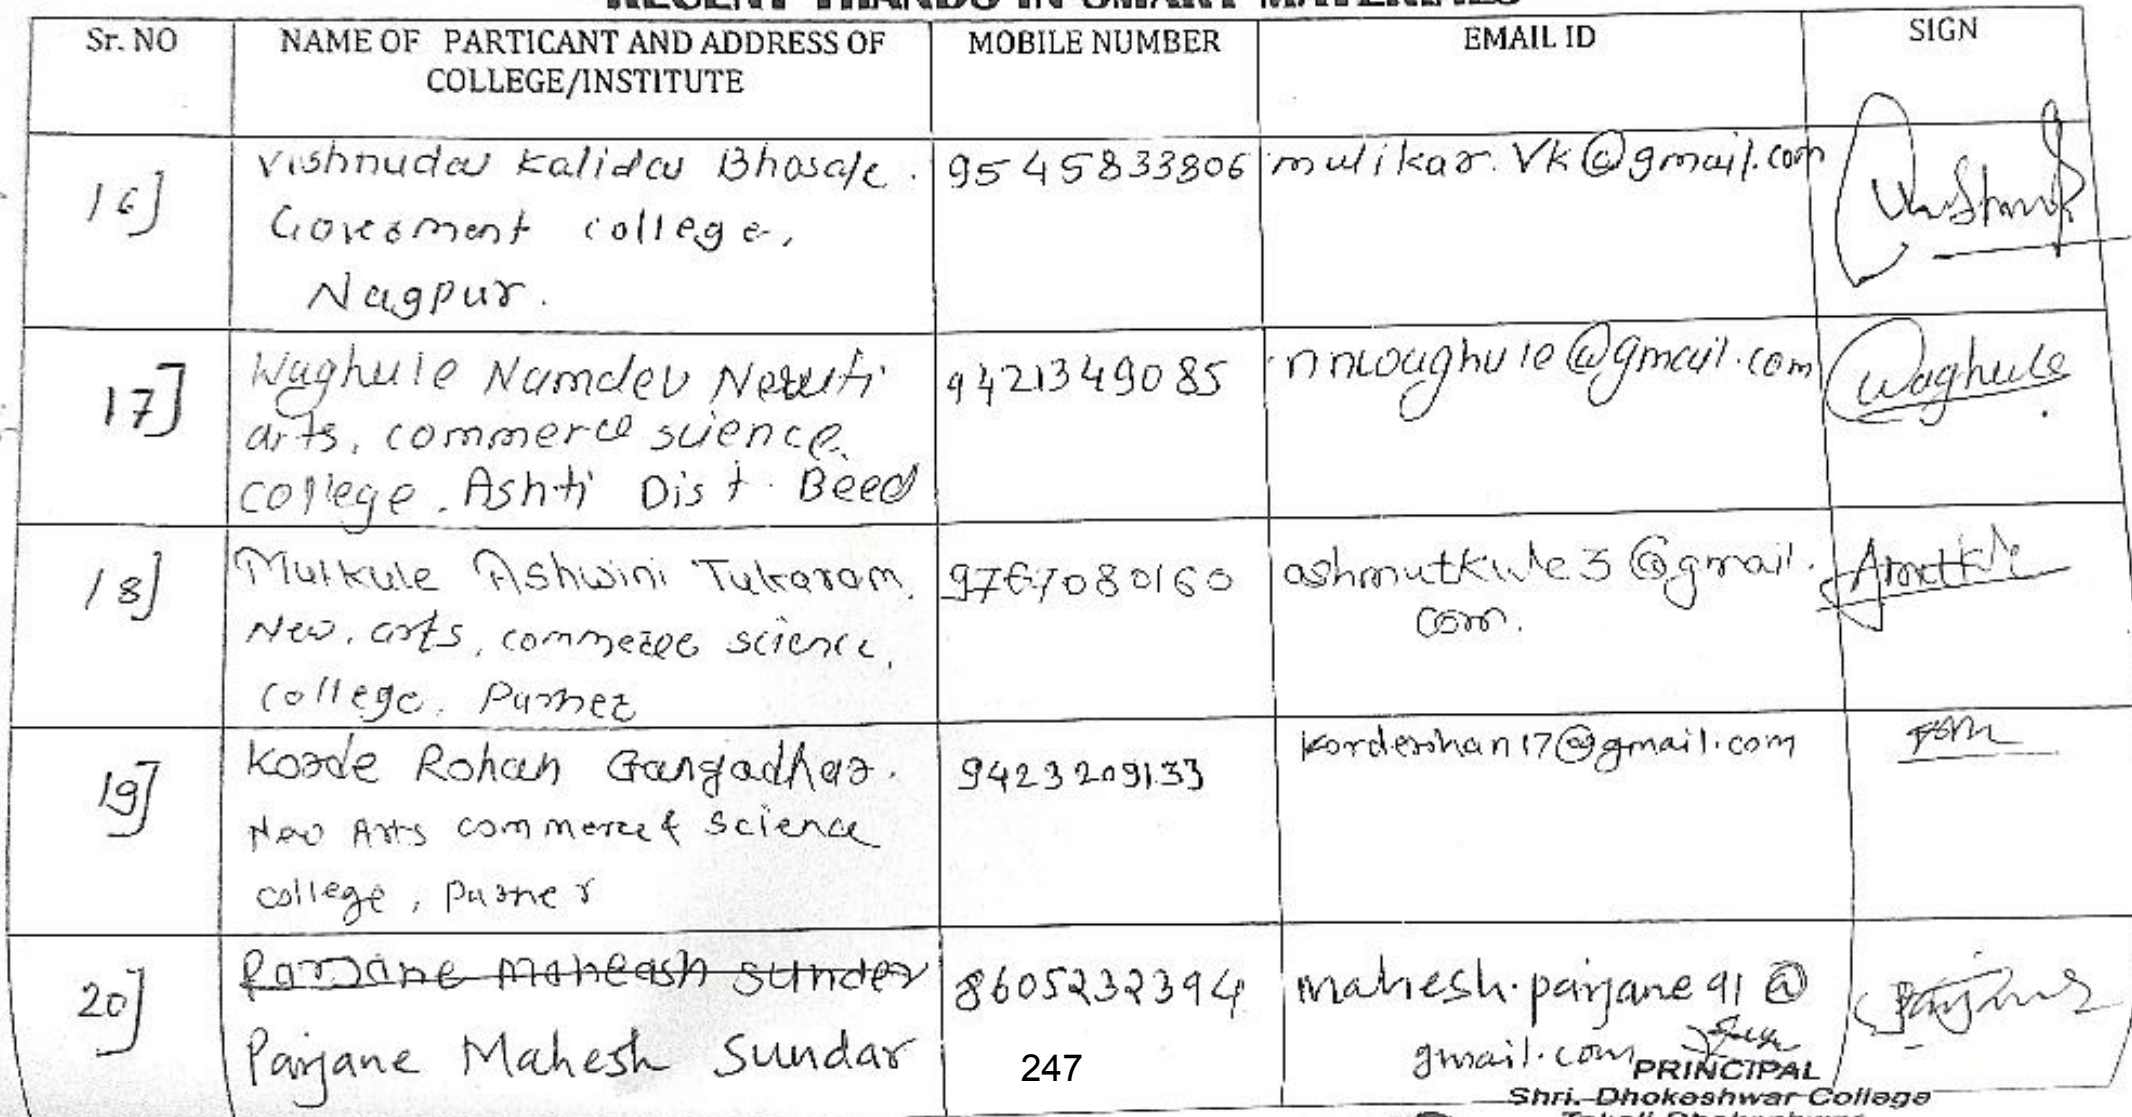 RECENT TRANDS IN SMART MATERIALS
Sr. NO
NAME OF PARTICANT AND ADDRESS OF
COLLEGE/INSTITUTE
MOBILE NUMBER
EMAIL ID
SIGN
16]
Vishnudas Kalidas Bhosale.
Goverment college,
Nagpur.
9545833806
mulikar.vk@gmail.com
17]
Waghule Namdev
arts, commerce science
college. Ashti Dist. Beed
9421349085
nnwaghule@gmail.com
Waghule
18]
Mutkule Ashwini Tukaram.
New. arts, commerce science,
college. Parner
9767080160
ashmutkule3@gmail.
com.
19]
Korde Rohan Gangadhar.
New Arts commerce & science
college, Parner
9423209133
korderohan17@gmail.com
20]
Parjane Maheash sunder
Parjane Mahesh Sundar
8605232394
mahesh.parjane91@
gmail.com
Parjane
247
PRINCIPAL
Shri. Dhokeshwar College
Takali Dhokeshwar